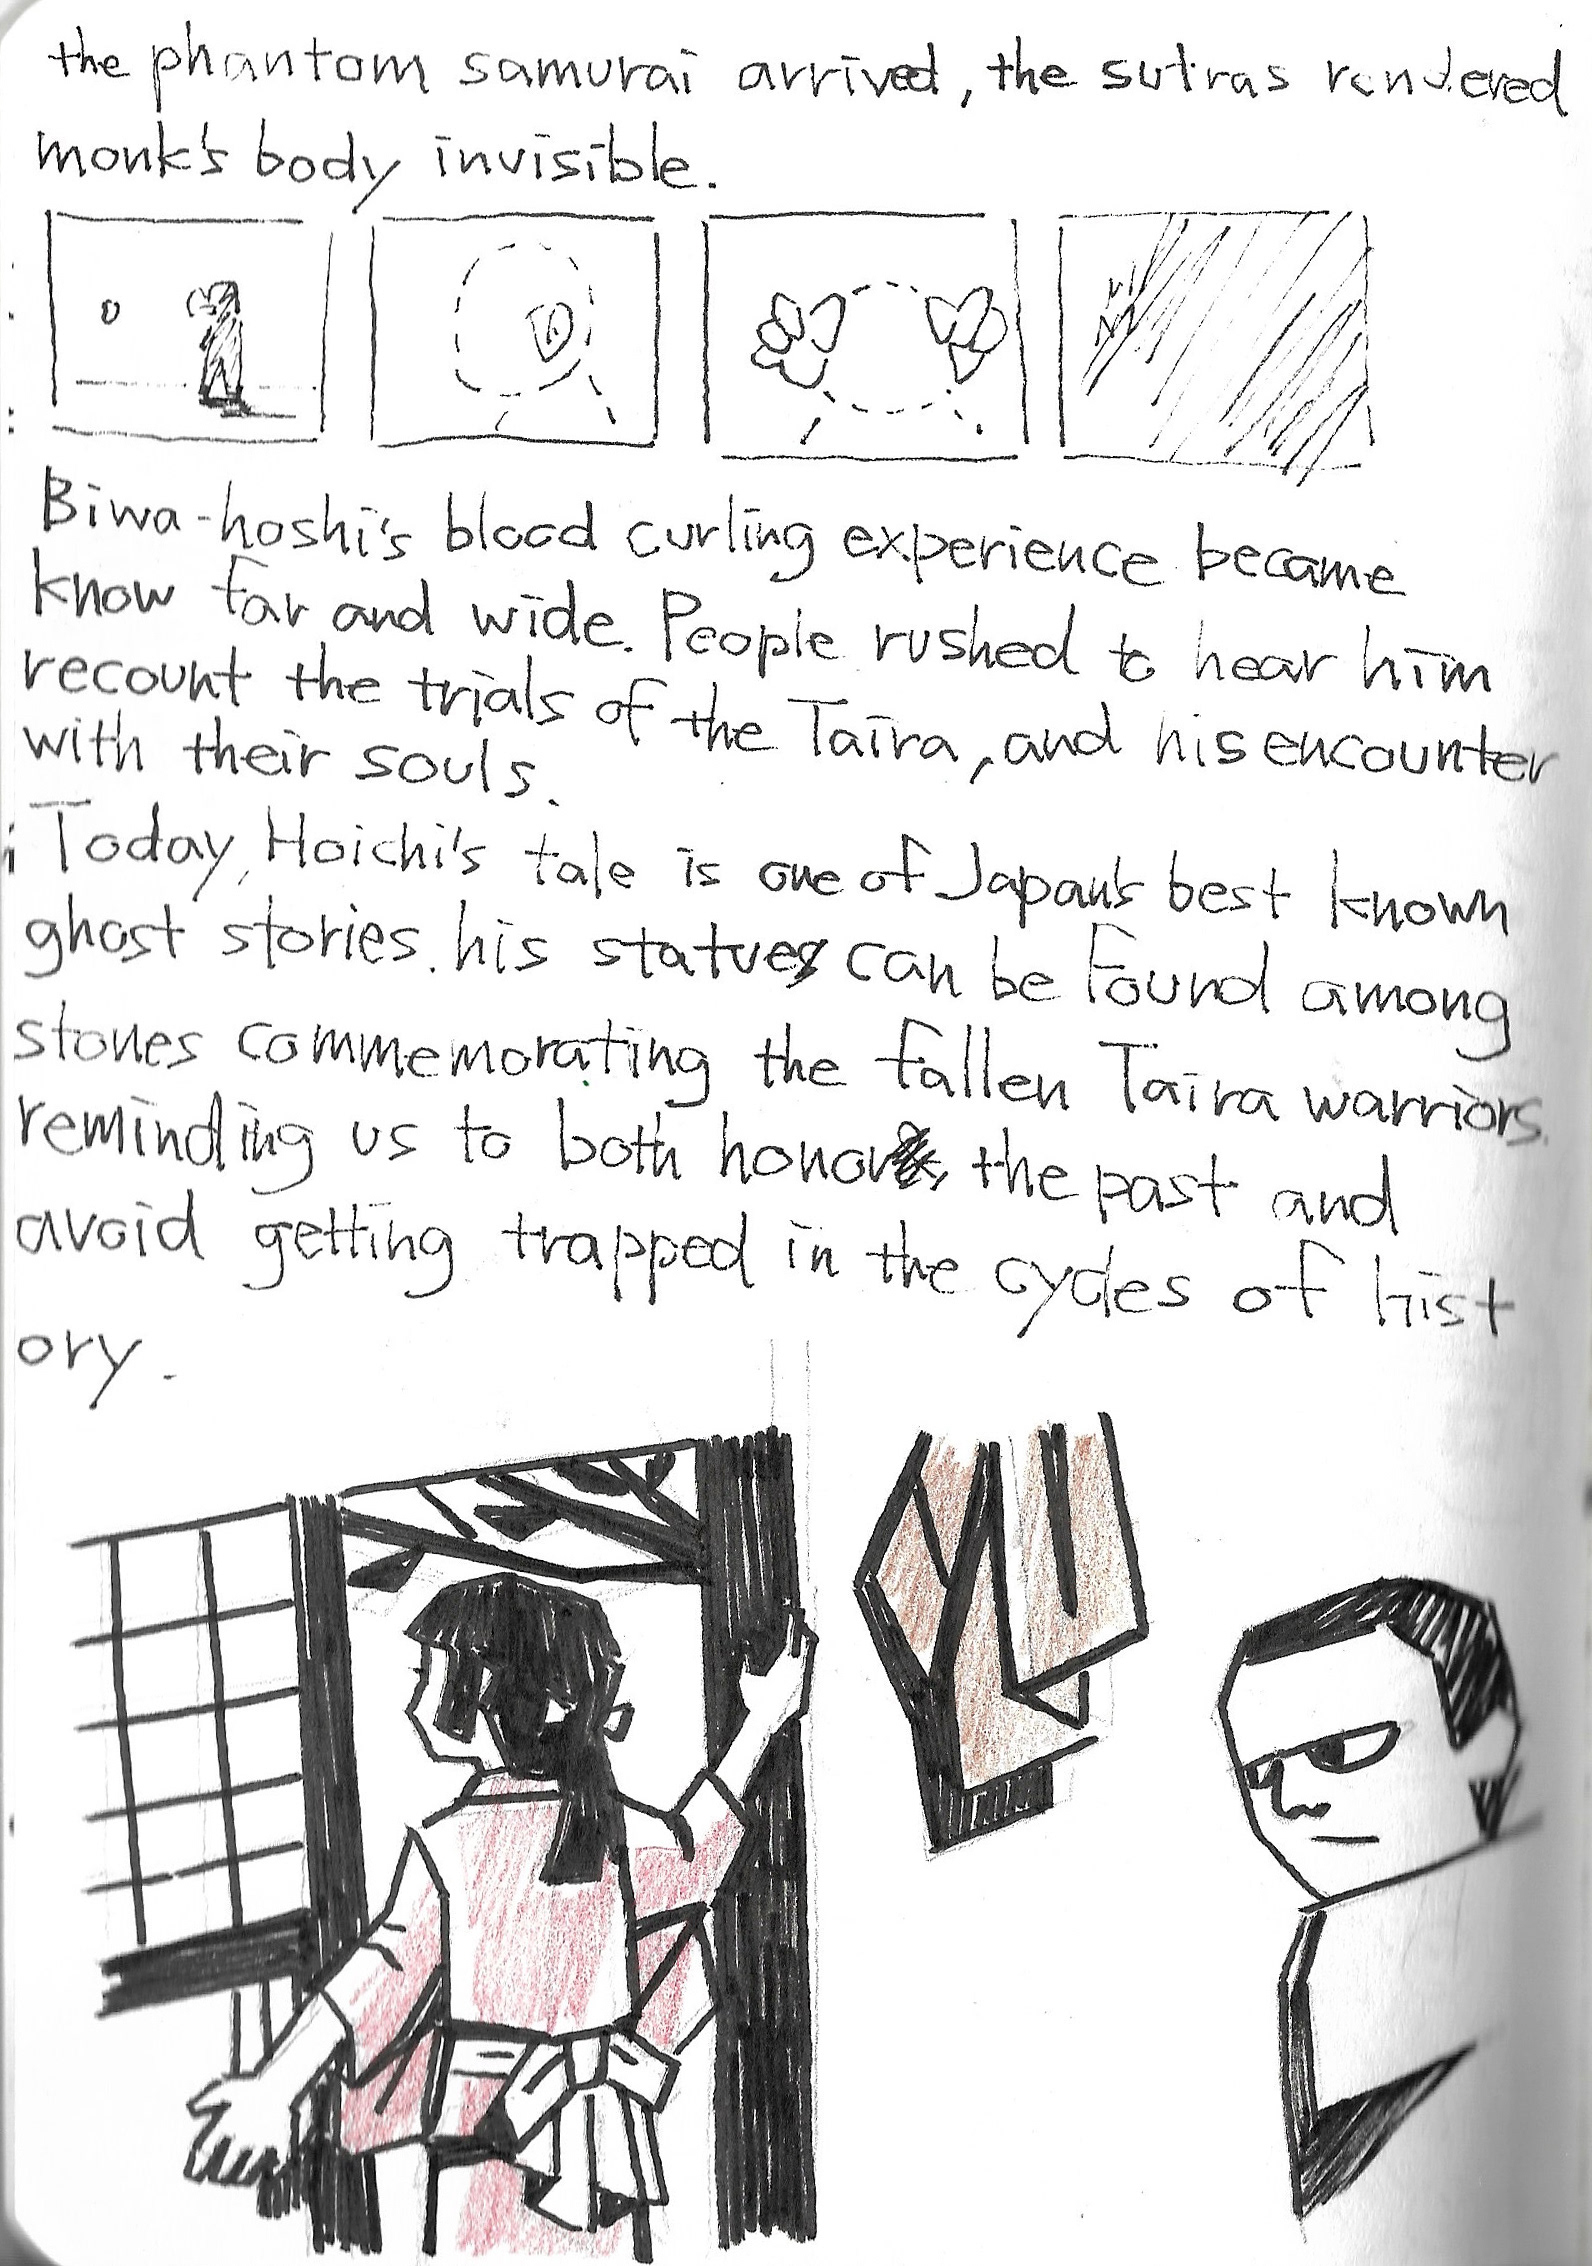 the phantom samurai arrived, the sutras rendered
monk's body invisible.
Biwa-hoshi's blood curling experience became
know far and wide. People rushed to hear him
recount the trials of the Taira, and his encounter
with their souls.
Today, Hoichi's tale is one of Japan's best known
ghost stories. his statues can be found among
stones commemorating the fallen Taira warriors.
reminding us to both honor the past and
avoid getting trapped in the cycles of hist
ory.